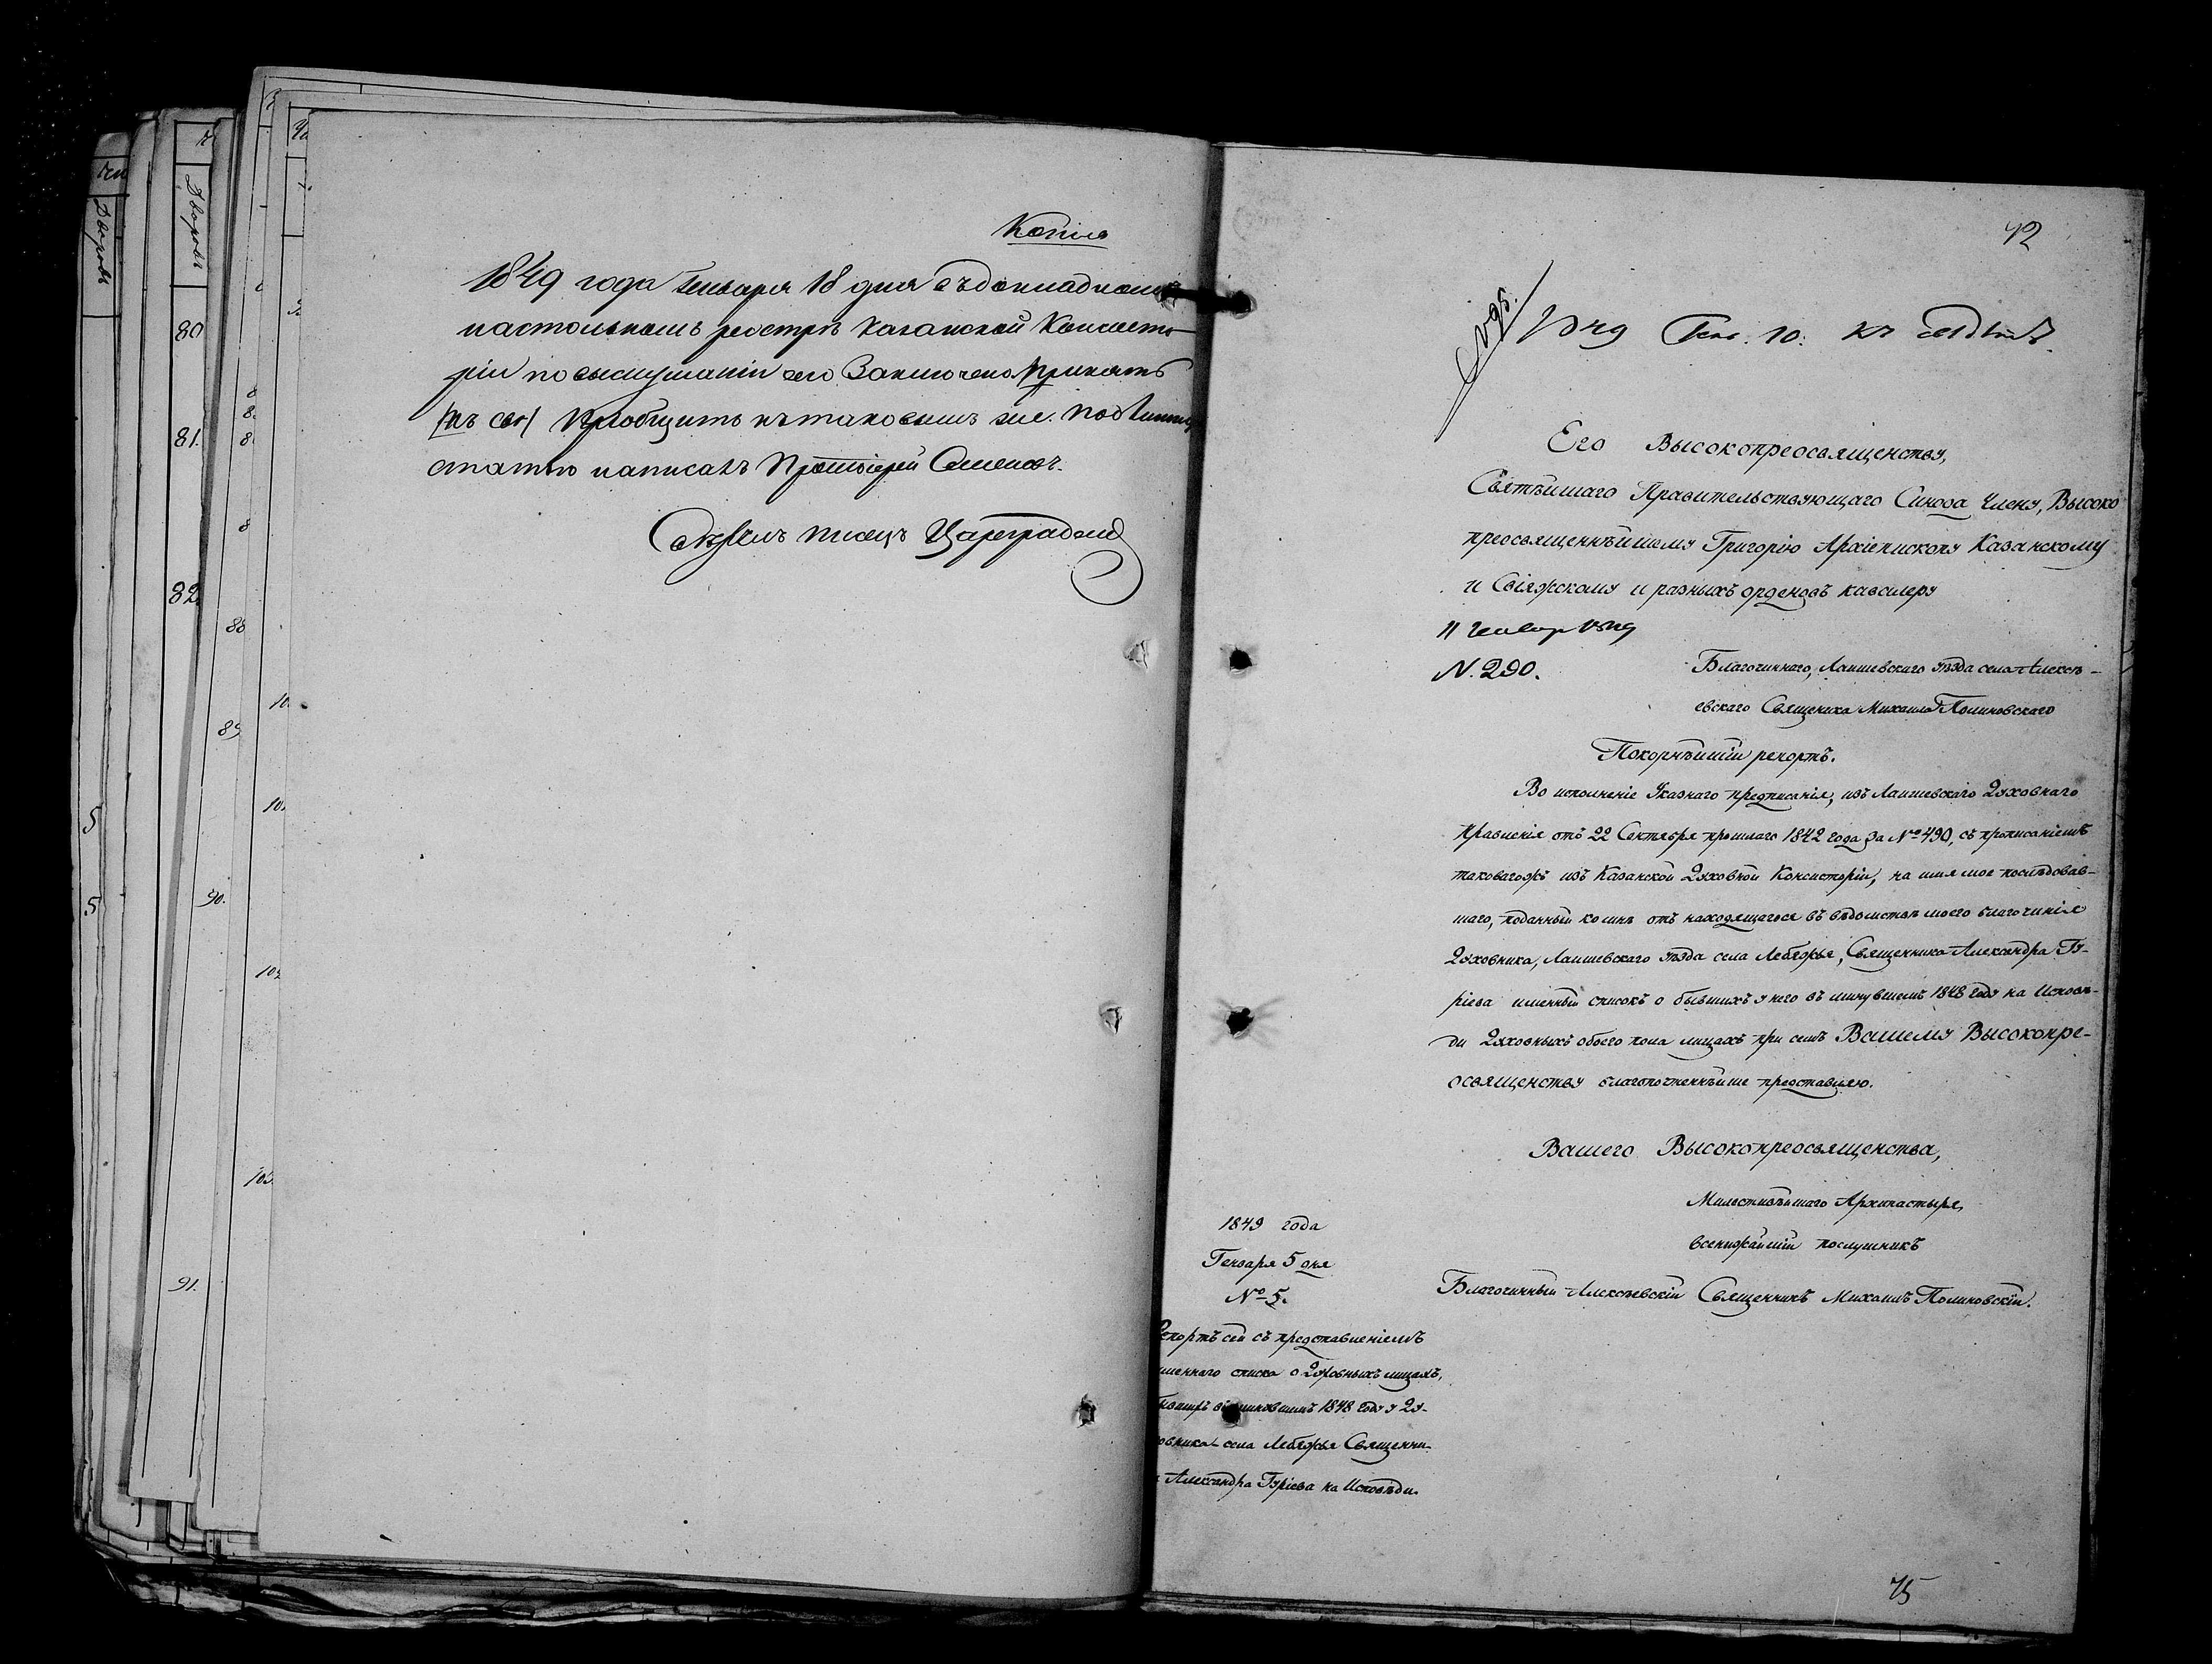 Копія
1849 года Генваря 18 дня въ докладномъ
настольномъ реэстрѣ Казанской Консисто-
ріи по выслушаніи сего Заключено: Принять
/къ свѣ/ Пріобщить къ таковымъ же. Подлинную
статью написалъ Протоіерей Семеновъ.
Свѣрилъ писецъ Цареградскій
80
81.
82.
88
89
90.
91.
5
5
Дворовъ
Дворовъ
42
1849 Генв. 10. Къ свѣд
Его Высокопреосвященству,
Святѣйшаго Правительствующаго Синода Члену, Высоко
преосвященнѣйшему Григорію Архіепископу Казанскому
и Свіяжскому и разныхъ орденовъ кавалеру
11 Генвар 1849
N. 290.
Благочиннаго, Лаишевскаго уѣзда села Алексѣ-
евскаго Священика Михаила Полиновскаго
Покорнѣйшій репортъ.
Во исполненіе Указнаго предписанія, изъ Лаишевскаго Духовнаго
Правленія отъ 22 Сентября прошлаго 1842 года за № 490, съ прописаніемъ
таковагожъ изъ Казанской Духовной Консисторіи, на имя мое послѣдовав-
шаго, поданный ко мнѣ отъ находящагося въ вѣдомствѣ моего благочинія
Духовника, Лаишевскаго уѣзда села Лебяжья, Священника Александра Гу-
ріева именный списокъ о бывшихъ у него въ минувшемъ 1848 году на Исповѣ-
ди Духовныхъ обоего пола лицахъ при семъ Вашему Высокопре-
освященству благопочтеннѣйше представляю.
Вашего Высокопреосвященства,
Милостивѣйшаго Архипастыря,
всенижайшій послушникъ
Благочинный Алексѣевскій Священникъ Михаилъ Полиновскій.
1849 года
Генваря 5 дня
№ 5.
Репортъ сей съ представленіемъ
именнаго списка о Духовныхъ лицахъ,
бывшихъ въ миновшемъ 1848 году у Ду-
овника села Лебяжья Священни-
Александра Гуріева на Исповѣди.
75